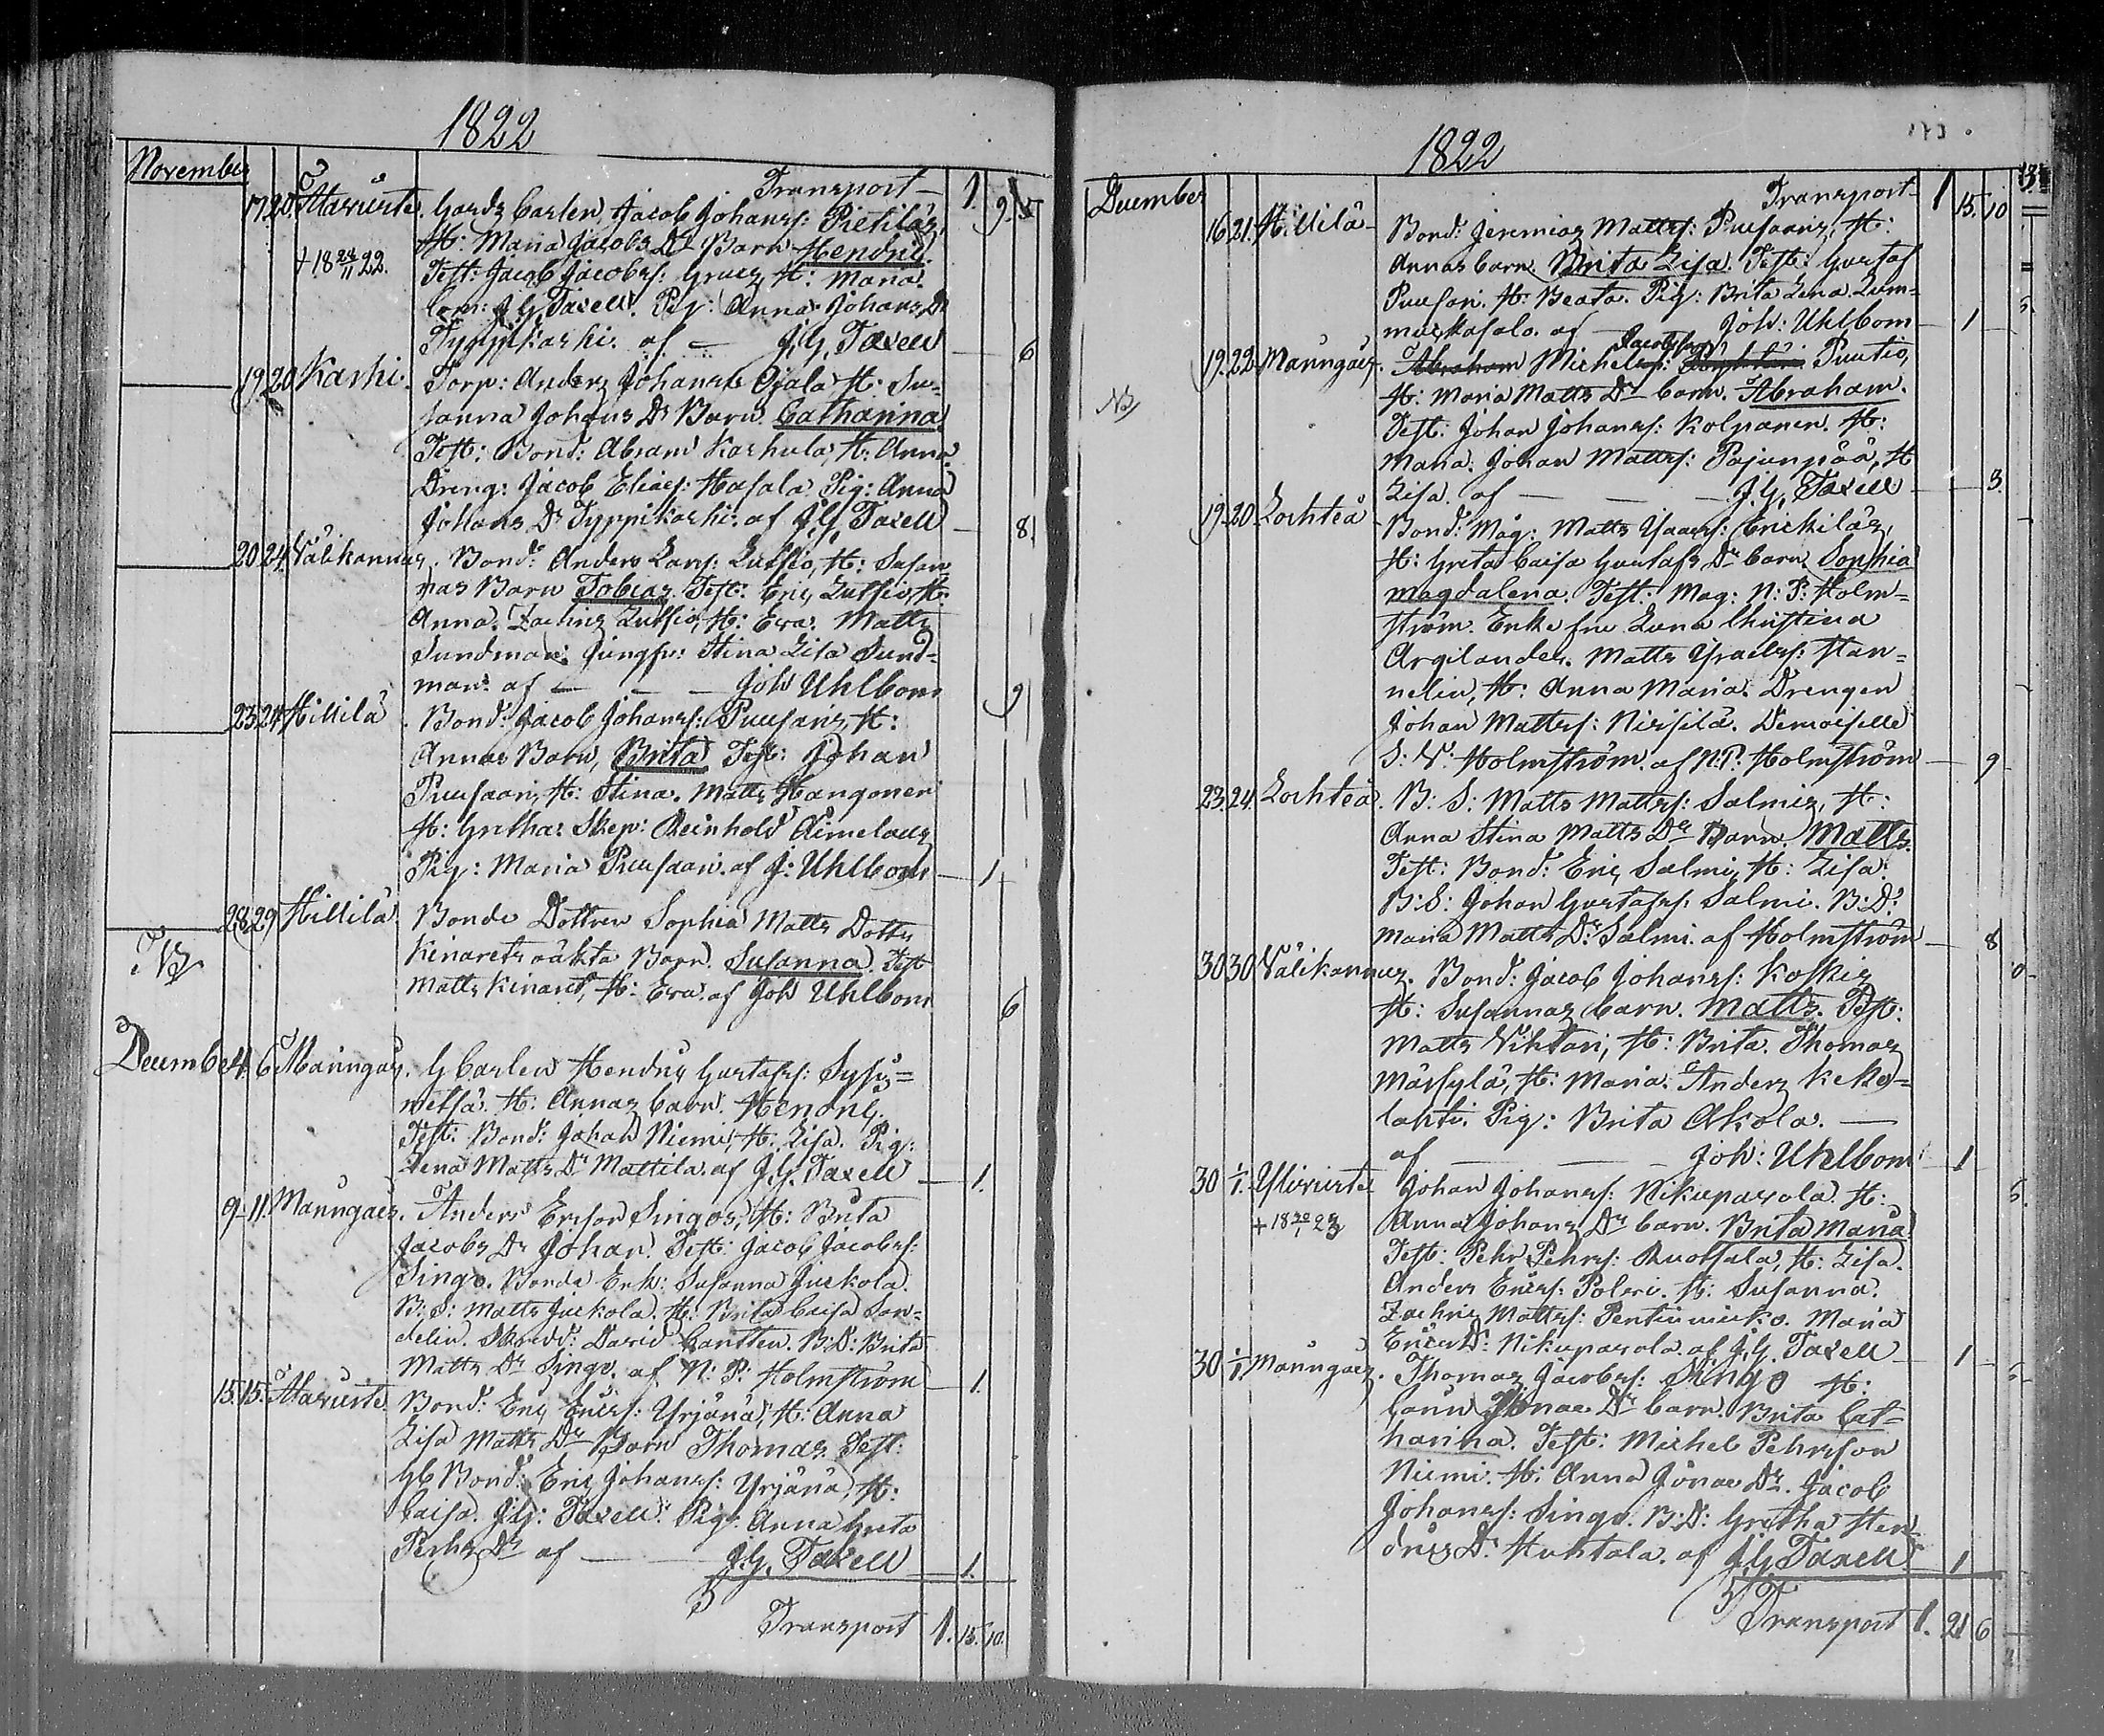 1822
November
Transport 1. 9. 5
17. 20. Alaviirte. Gårdz Carlen, Jacob Johanss: Pietiläz,
H: Maria Jacobs Dr Barn Hendric.
+ 18 24/11 22. Test: Jacob Jacobss: Gruez, H: Maria.
Com: J. G. Taxell. Pig: Anna Johans Dr
Typpikarhi. af — J. G. Taxell — 6
19. 20. Karhi. Torp: Anders Johanss Ojala H: Su-
sanna Johans Dr Barn. Catharina
Test: Bond: Abram Karhula, H: Anna.
Dreng: Jacob Eliaes: Hasala. Pig: Anna
Johans Dr Typpikarhi. af J. G. Taxell — 8.
20. 24. Välikannus. Bond: Anders Lars: Lutsio, H: Susan
nas Barn Tobias. Test: Eric Lutsio, H:
Anna. Zachris Lutsio, H: Eva. Matts
Sundman. Jungfu: Stina Lisa Sund-
man. af — — Joh Uhlbom 9
23. 24. Hillilä. Bond: Jacob Johanss: Puusaariz, H:
Annas Barn, Brita Test: Johan
Puusaari, H: Stina. Matts Hangonen
H: Gretha: Skep: Reinhold Aimelaus
Pig: Maria Puusaari. af J: Uhlbom — 1 —
28. 29 Hillilä. Bonde Dottren Sophia Matts Dotts
NB Kinarets oäkta Barn. Susanna. Test
Matts Kinaret, H: Eva. af Joh Uhlbom 6
December 4. 6 Maringais. G Carlen Hendric Gustafss: Sysi-
metsä. H: Annas barn. Hendric.
Test: Bond: Johan Niemi, H: Lisa. Pig:
Lena Matts Dr Mattila. af J. G. Taxell — 1.
9. 11. Maringais. Anders Ericson Singos, H: Brita
Jacobs Dr Johan. Test: Jacob Jacobss:
Singo. Bonde Enk: Susanna Juckola.
B: S: Matts Juckola. H: Brita Caisa San-
delin. Skredd: David Cantten. B: D: Brita
Matts Dr Singo. af N: P: Holmström — 1.
15. 15. Alaviirte. Bond: Eric Erics: Yrjänä, H: Anna
Lisa Matts Dr Barn Thomas. Test:
Gl Bond: Eric Johanss: Yrjänä, H:
Caisa. J: G: Taxell. Pig: Anna Greta
Pehrs Dr af — J. G. Taxell — 1.
Transport 1. 15. 10.
1822
December Transport 1 15. 10
16. 21. Hillilä — Bond: Jeremias Mattss: Puusaariz, H:
Annas barn. Brita Lisa. Test: Gustaf
Puusari. H: Beata. Pig: Brita Lena Lum-
muskasalo. af — Joh: Uhlbom — 1 —
Jacobsson
19. 22. Maringais. Abraham Michelss: Puutio,
NB H: Maria Matts Dr barn. Abraham.
Test: Johan Johanss: Kolpanen. H:
Maria. Johan Mattss: Pajunpää, H
Lisa. af — — J. G. Taxell 3.
19. 20. Lochteå Bond: Måg: Matts Isaacss: Erickiläs,
H: Greta Caisa Gustafs Dr barn Sophia
Magdalena. Test: Mag: N: P: Holm-
ström. Enke fru Lena Christina
Argilander. Matts Israelss: Han-
nelin, H: Anna Maria. Drengen
Johan Mattss: Nissilä. Demoiselle
S: V: Holmström. af N: P: Holmström — 9
23. 24. Lochteå. B: S: Matts Mattss: Salmis, H:
Anna Stina Matts Dr Barn. Matts.
Test: Bond: Eric Salmi, H: Lisa.
B: S: Johan Gustafss: Salmi. B: D:
Maria Matts Dr Salmi. af Holmström — 8
30 30 Välikannus. Bond: Jacob Johanss: Koskis
H: Susannas barn. Matts. Test:
Matts Vihtari, H: Brita. Thomas
Märsylä, H: Maria. Anders Keko-
lahti. Pig: Brita Akola. —
af — — Joh: Uhlbom — 1
30 1/1. Yliviirte Johan Johanss: Nikuparola. H:
+ 18 20/1 23 Anna Johans Dr barn. Brita Maria
Test: Pehr Pehrs: Ruotsala, H: Lisa.
Anders Erics: Poleri. H: Susanna.
Zachris Mattss: Penttinmikko. Maria
Erics Dr: Nikuparola. af J. G. Taxell — 1 —
30 1/1. Maringais. Thomas Jacobss: Singo H:
Carin Jonae Dr barn. Brita Cat-
harina. Test: Michel Pehrsson
Niemi. H: Anna Jonae Dr. Jacob
Johanss: Singo. B: D: Gretha Hen-
drics Dr. Huhtala. af J. G. Taxell — 1
Transport 1. 21 6